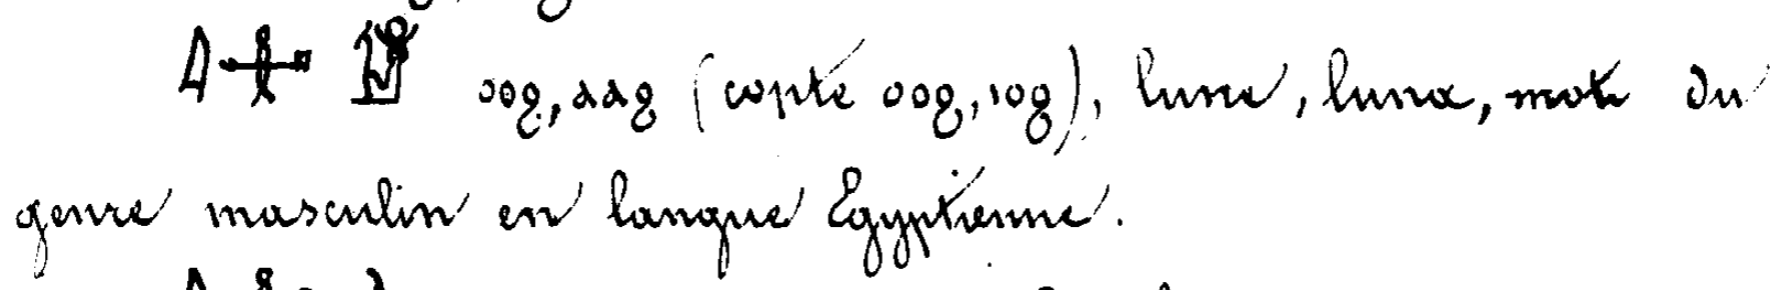 ⲟⲟϩ, ⲁⲁϩ (copte ⲟⲟϩ, ⲓⲟϩ), lune, luna, mot du
genre masculin en langue Egyptienne.